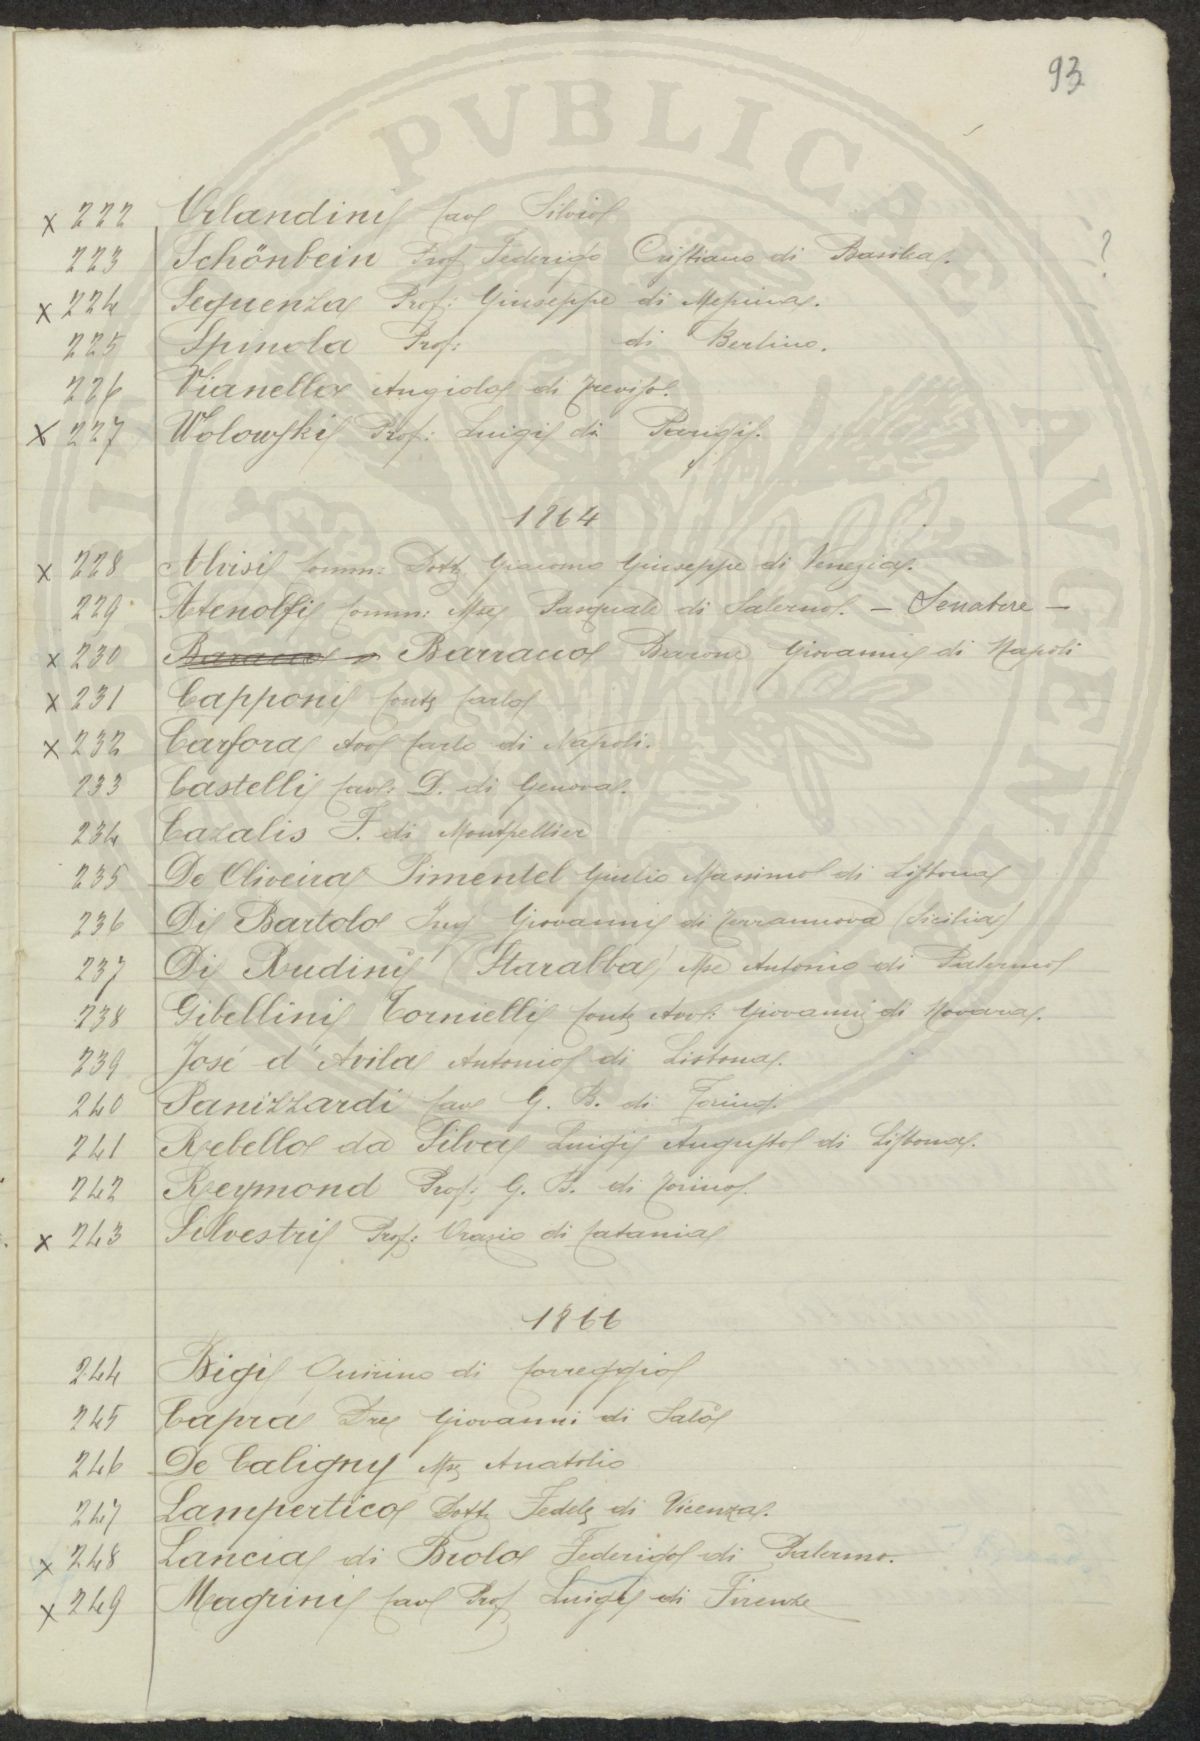 93
x 222 Orlandini Cav Silvio
223 Schönbein Prof Federigo Cristiano di Basilea. ?
x 224 Seguenza Prof: Giuseppe di Messina.
225 Spinola Prof: di Berlino.
226 Vianello Angiolo di Treviso.
x 227 Wolowski Prof: Luigi di Parigi.
1864
x 228 Alvisi Comm: Dott Giacomo Giuseppe di Venezia.
229 Atenolfi Comm: Mse Pasquale di Salerno. - Senatore -
x 230 Baracco Barracco Barone Giovanni di Napoli
x 231 Capponi Conte Carlo
x 232 Carfora Avv Carlo di Napoli.
233 Castelli Cav: D. di Genova.
234 Cazalis F. di Montpellier
235 De Oliveira Pimentel Giulio Massimo di Lisbona
236 Di Bartolo Ing Giovanni di Terranuova (Sicilia)
237 Di Rudinì (Staralba) Mse Antonio di Palermo
238 Gibellini Tornielli Conte Avv: Giovanni di Novara.
239 José d'Avila Antonio di Lisbona.
240 Panizzardi Cav G. B. di Torino.
241 Rebello da Silva Luigi Augusto di Lisbona.
242 Reymond Prof: G. B. di Torino.
x 243 Silvestri Prof: Orazio di Catania
1866
244 Bigi Quirino di Correggio
245 Capra Dre Giovanni di Salò
246 De Caligny Mse Anatolio
247 Lampertico Dott Fedele di Vicenza.
x 248 Lancia di Brolo Federigo di Palermo.
x 249 Magrini Cav Prof Luigi di Firenze